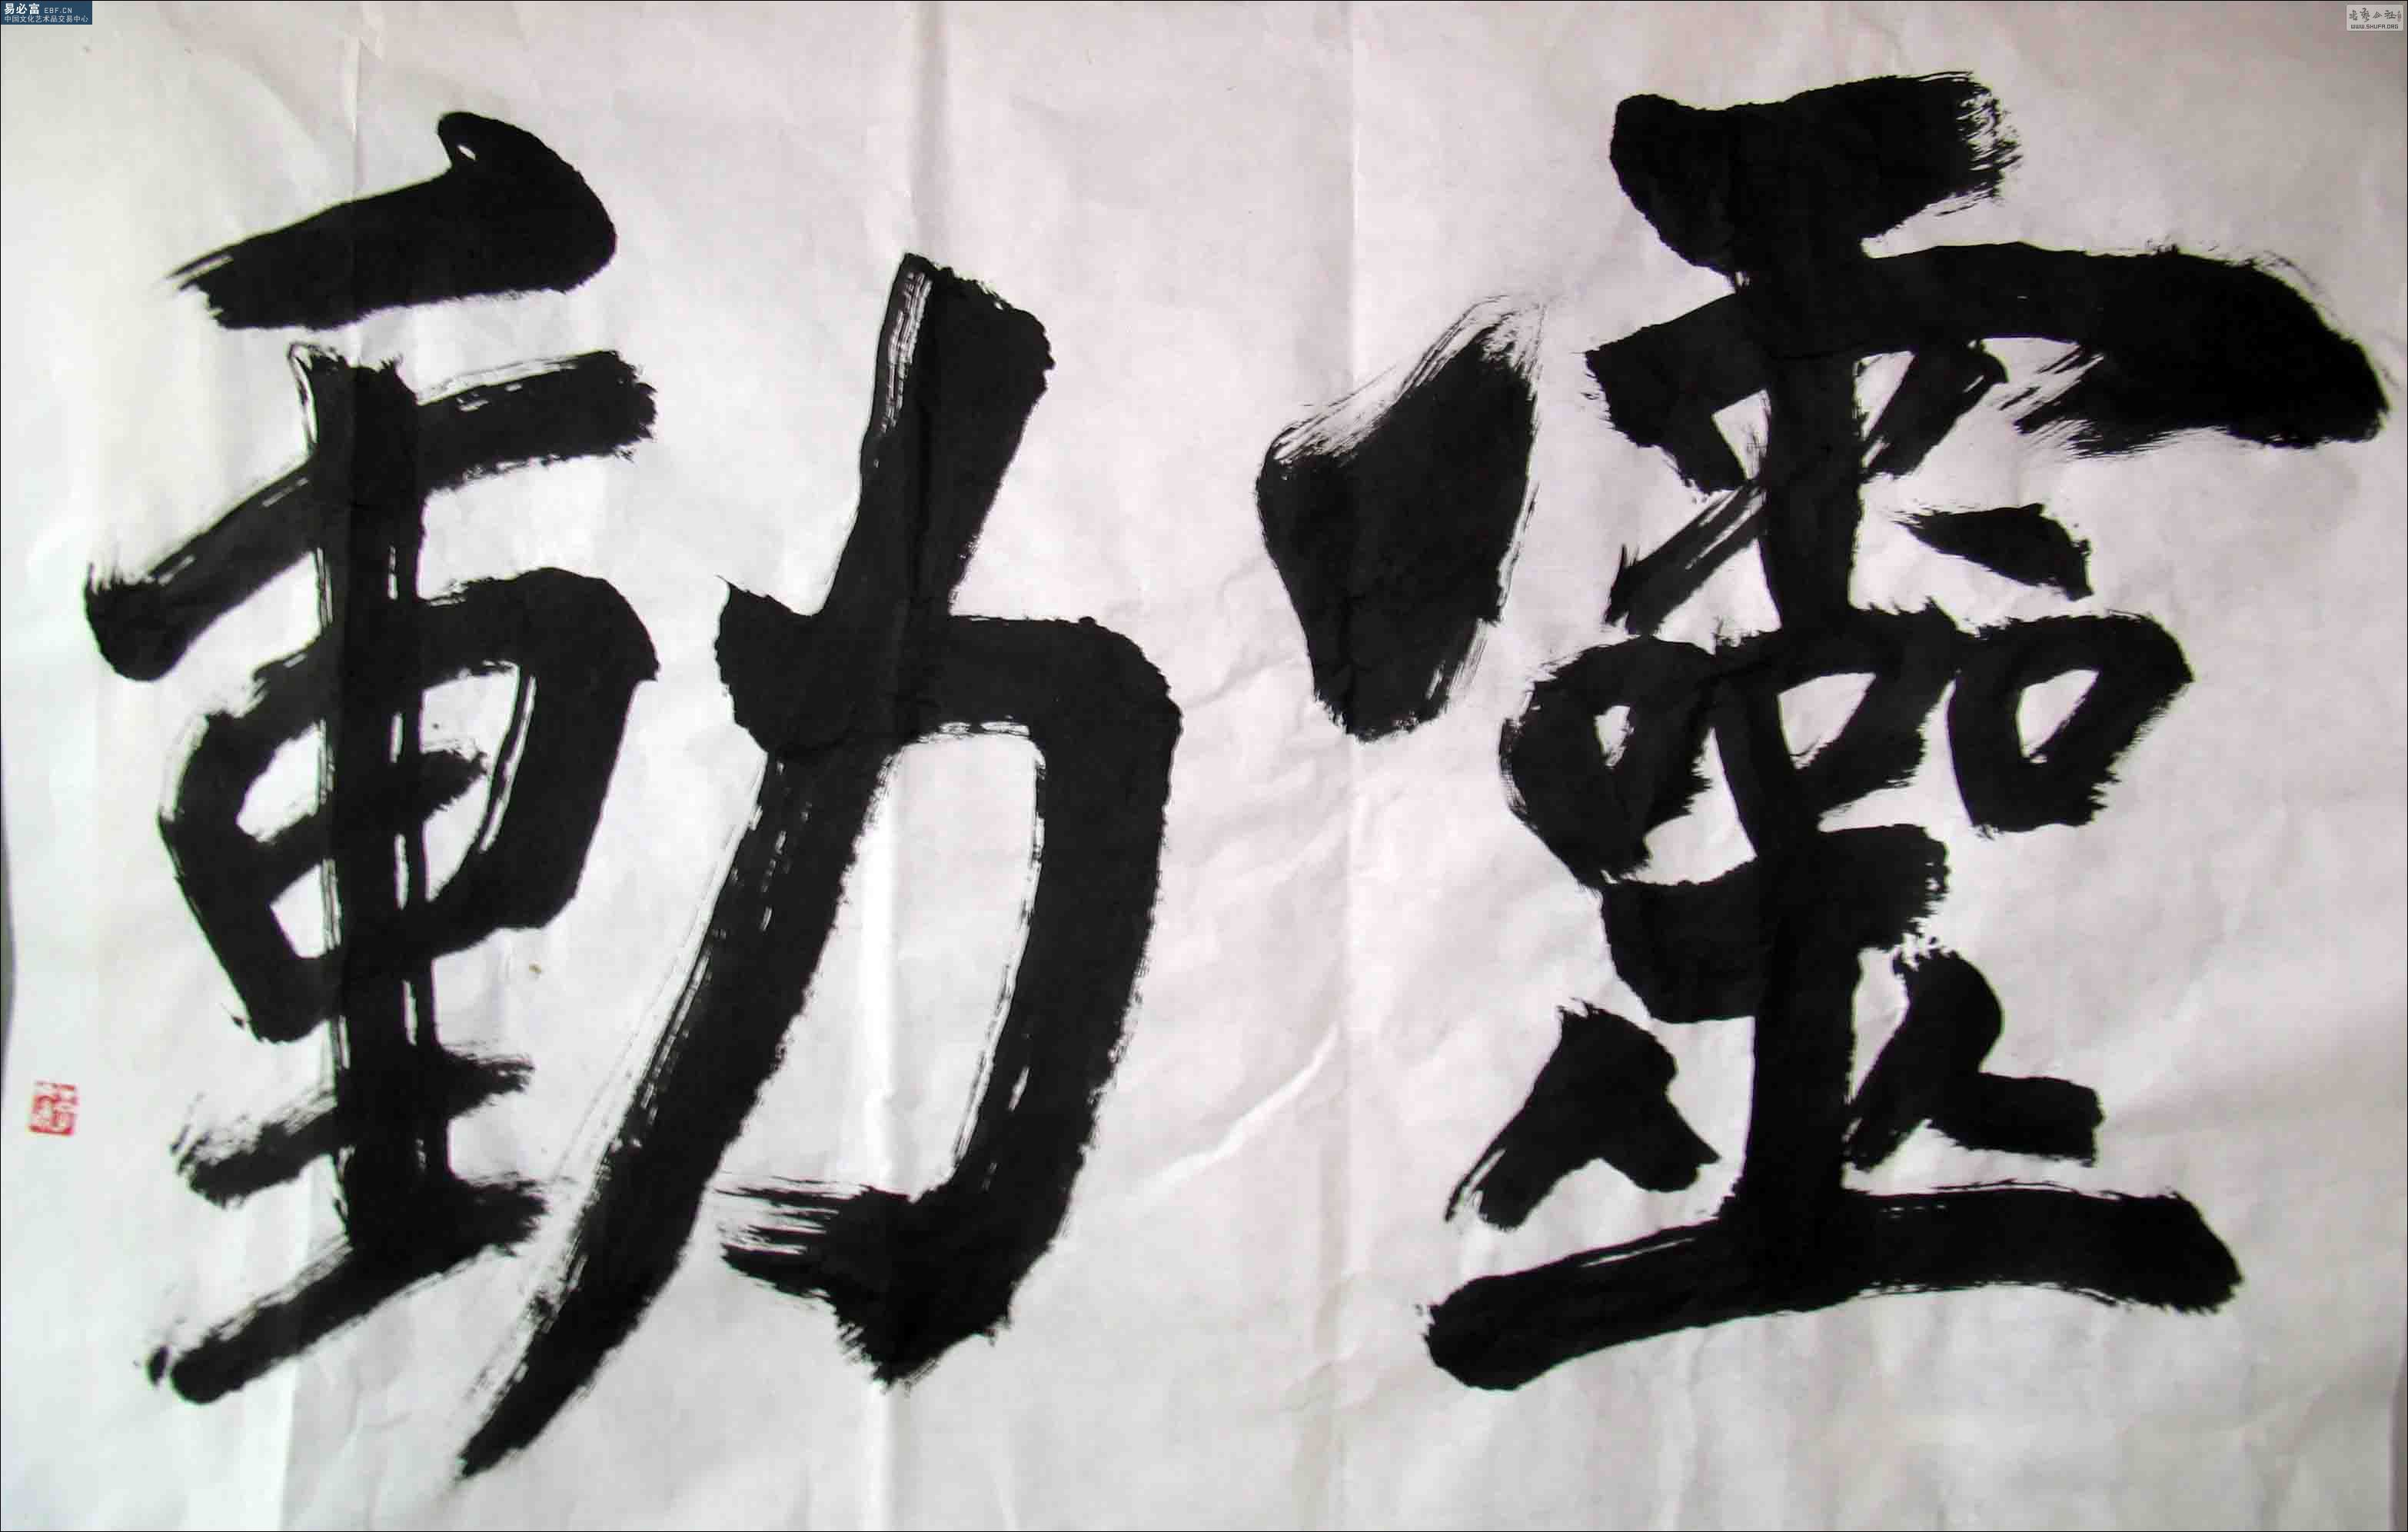 靈動
易必富 EBF.CN
中国文化艺术品交易中心
WWW.SHUFA.ORG